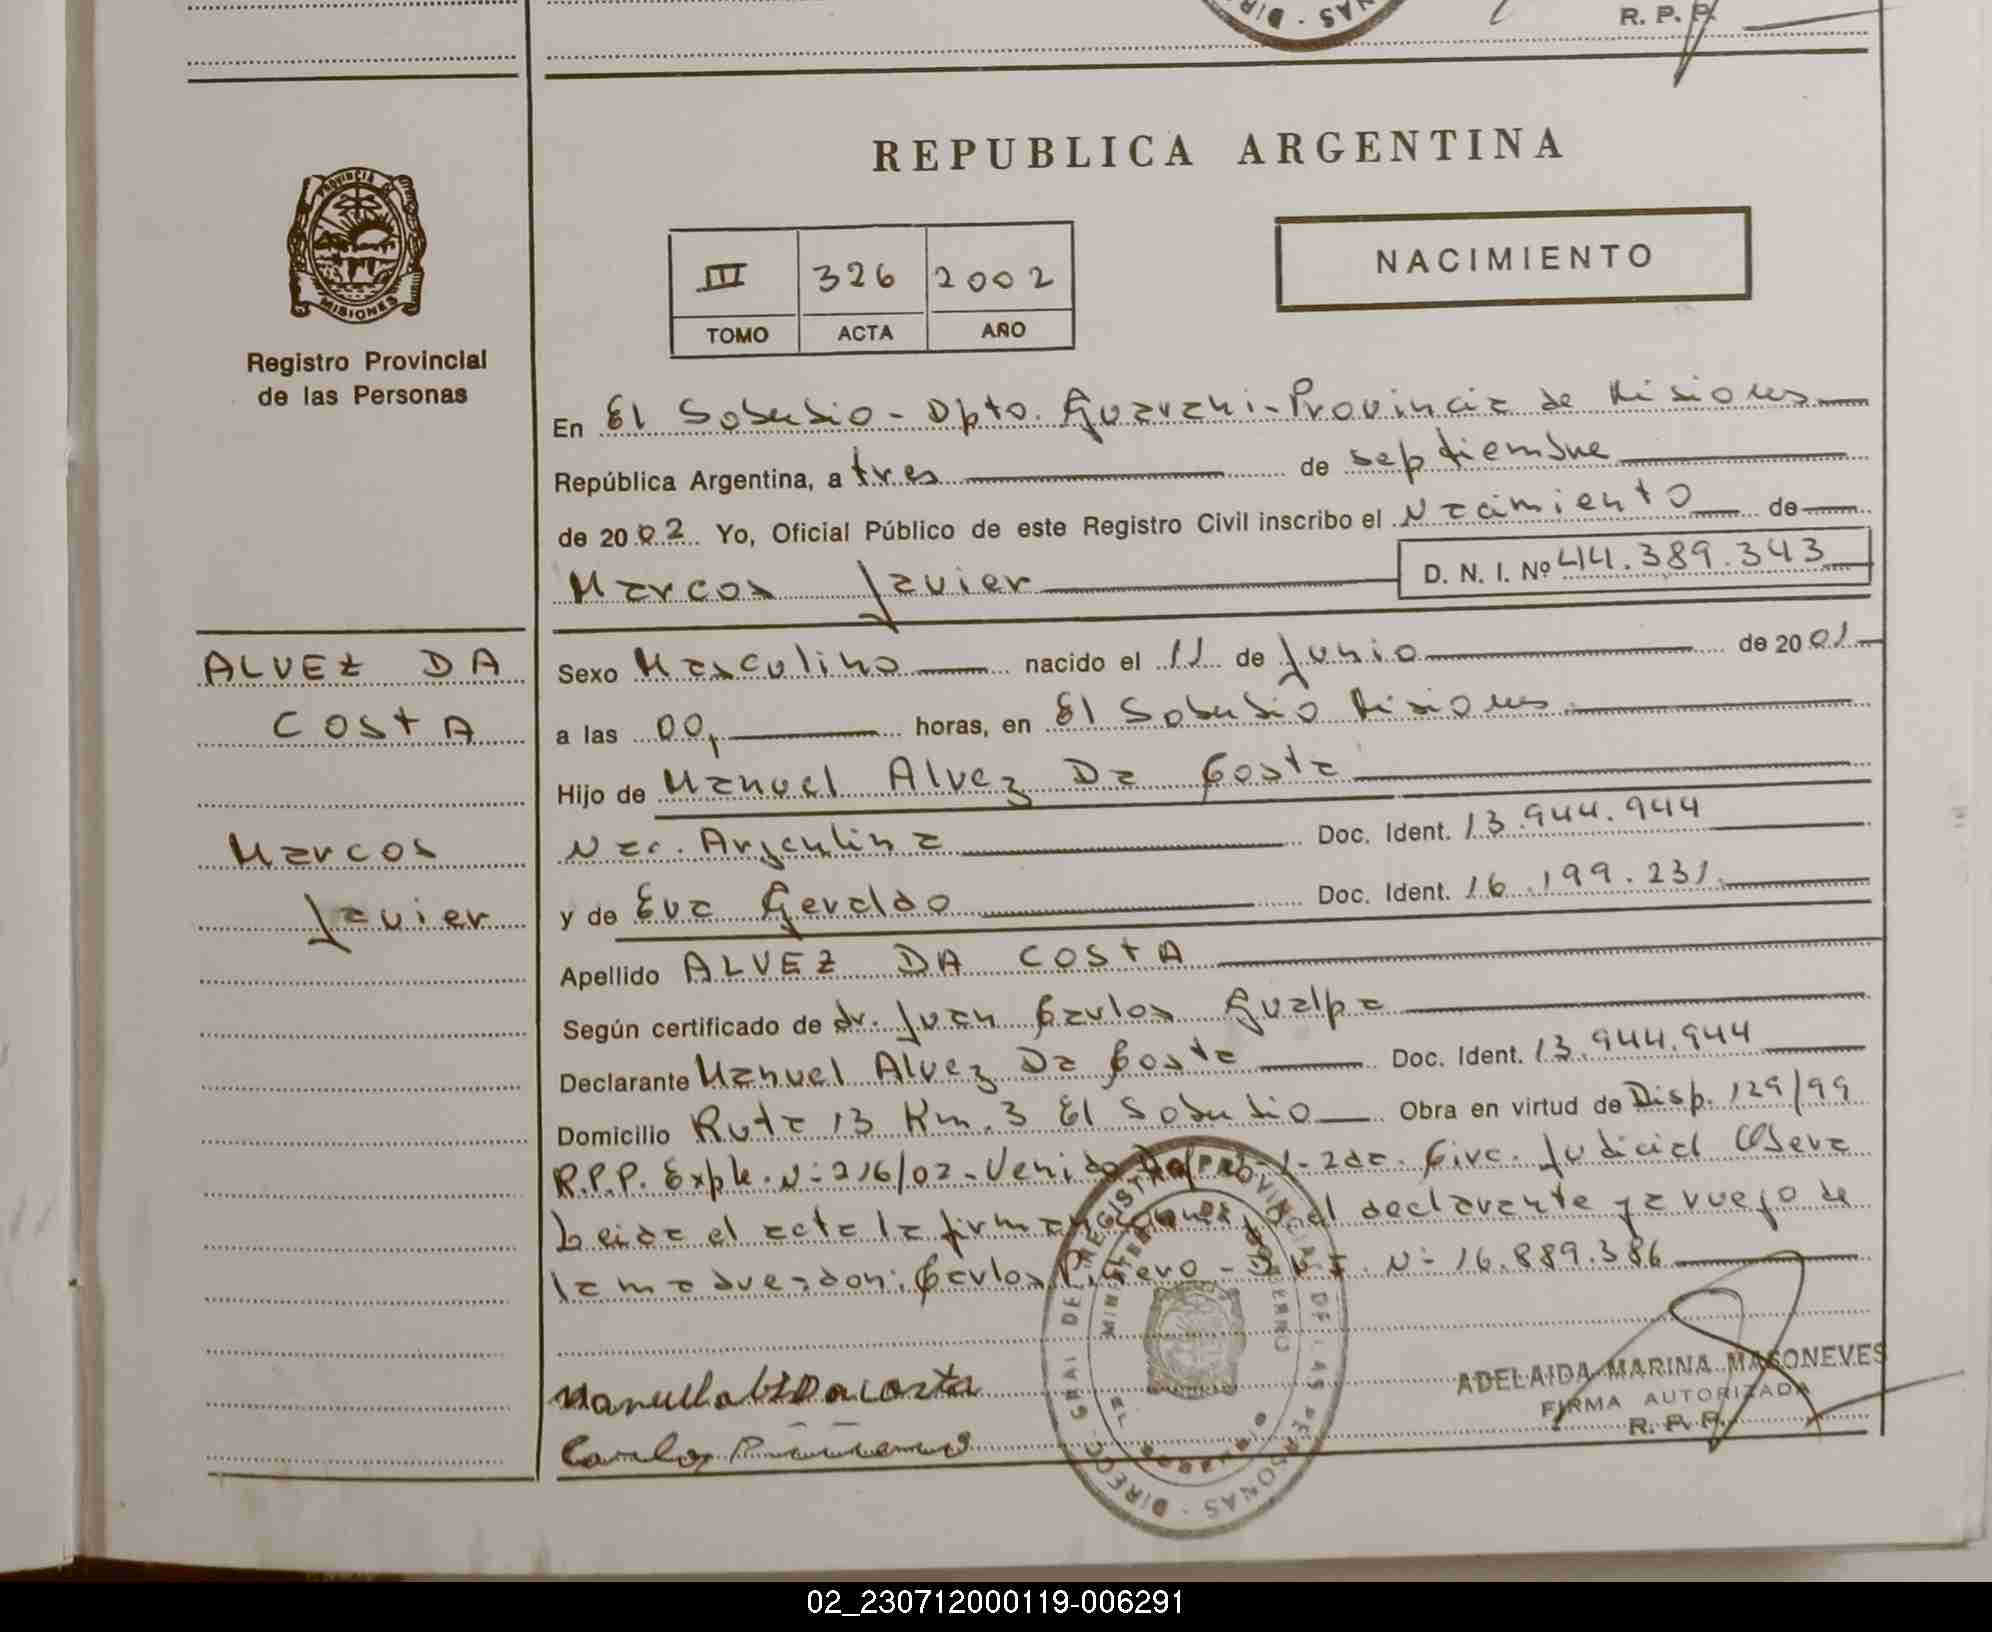 R. P. P.
REPUBLICA ARGENTINA
PROVINCIA DE
MISIONES
Registro Provincial
de las Personas
III 326 2002
TOMO ACTA AÑO
NACIMIENTO
En El Soberbio - Dpto. Guarani - Provincia de Misiones
República Argentina, a tres de septiembre
de 2002 Yo, Oficial Público de este Registro Civil inscribo el Nacimiento de
Marcos Javier D. N. I. Nº 44.389.343
ALVEZ DA
COSTA
Marcos
Javier
Sexo Masculino nacido el 11 de Junio de 2001
a las 00, horas, en El Soberbio Misiones
Hijo de Manuel Alvez Da Costa
Nac. Argentina Doc. Ident. 13.944.944
y de Eva Geraldo Doc. Ident. 16.199.231
Apellido ALVEZ DA COSTA
Según certificado de dr. Juan Carlos Gualpa
Declarante Manuel Alvez Da Costa Doc. Ident. 13.944.944
Domicilio Ruta 13 Km. 3 El Soberbio Obra en virtud de Disp. 129/99
R.P.P. Expte. Nº 216/02 - Venido 2da. Circ. Judicial Obera
Leida el acta la firman el declarante y a ruego de
la madre, don: Carlos Nº 16.889.386
Carlos
ADELAIDA MARINA MASONEVES
FIRMA AUTORIZADA
R. P. P.
DIRECC. GRAL DEL REGISTRO PROVINCIAL DE LAS PERSONAS
MINISTERIO DE GOBIERNO
EL SOBERBIO
02_230712000119-006291